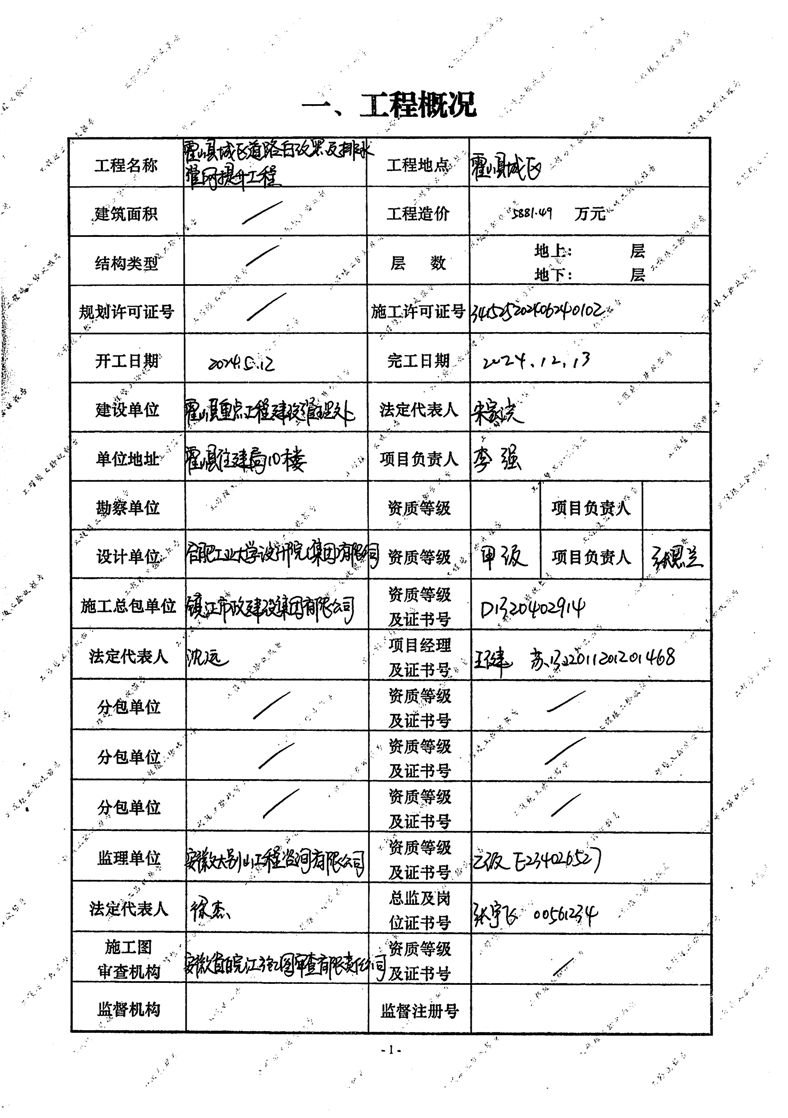 一、工程概况
工程名称 霍山县城区道路白改黑及排水管网提升工程 工程地点 霍山县城区
建筑面积 / 工程造价 5881.49 万元
结构类型 / 层 数 地上： 层
地下： 层
规划许可证号 / 施工许可证号 341525202406240102
开工日期 2024.5.12 完工日期 2024.12.13
建设单位 霍山县重点工程建设管理处 法定代表人
单位地址 霍山县住建局10楼 项目负责人 李强
勘察单位 资质等级 项目负责人
设计单位 合肥工业大学设计院(集团)有限公司 资质等级 甲级 项目负责人
施工总包单位 镇江市政建设集团有限公司 资质等级及证书号 D1320402914
法定代表人 沈远 项目经理及证书号 王健 苏1322011201201468
分包单位 / 资质等级及证书号 /
分包单位 / 资质等级及证书号 /
分包单位 / 资质等级及证书号 /
监理单位 安徽大别山工程咨询有限公司 资质等级及证书号 乙级 E234026527
法定代表人 徐杰 总监及岗位证书号 张宇飞 00561234
施工图审查机构 安徽省皖江施工图审查有限责任公司 资质等级及证书号 /
监督机构 监督注册号
- 1 -